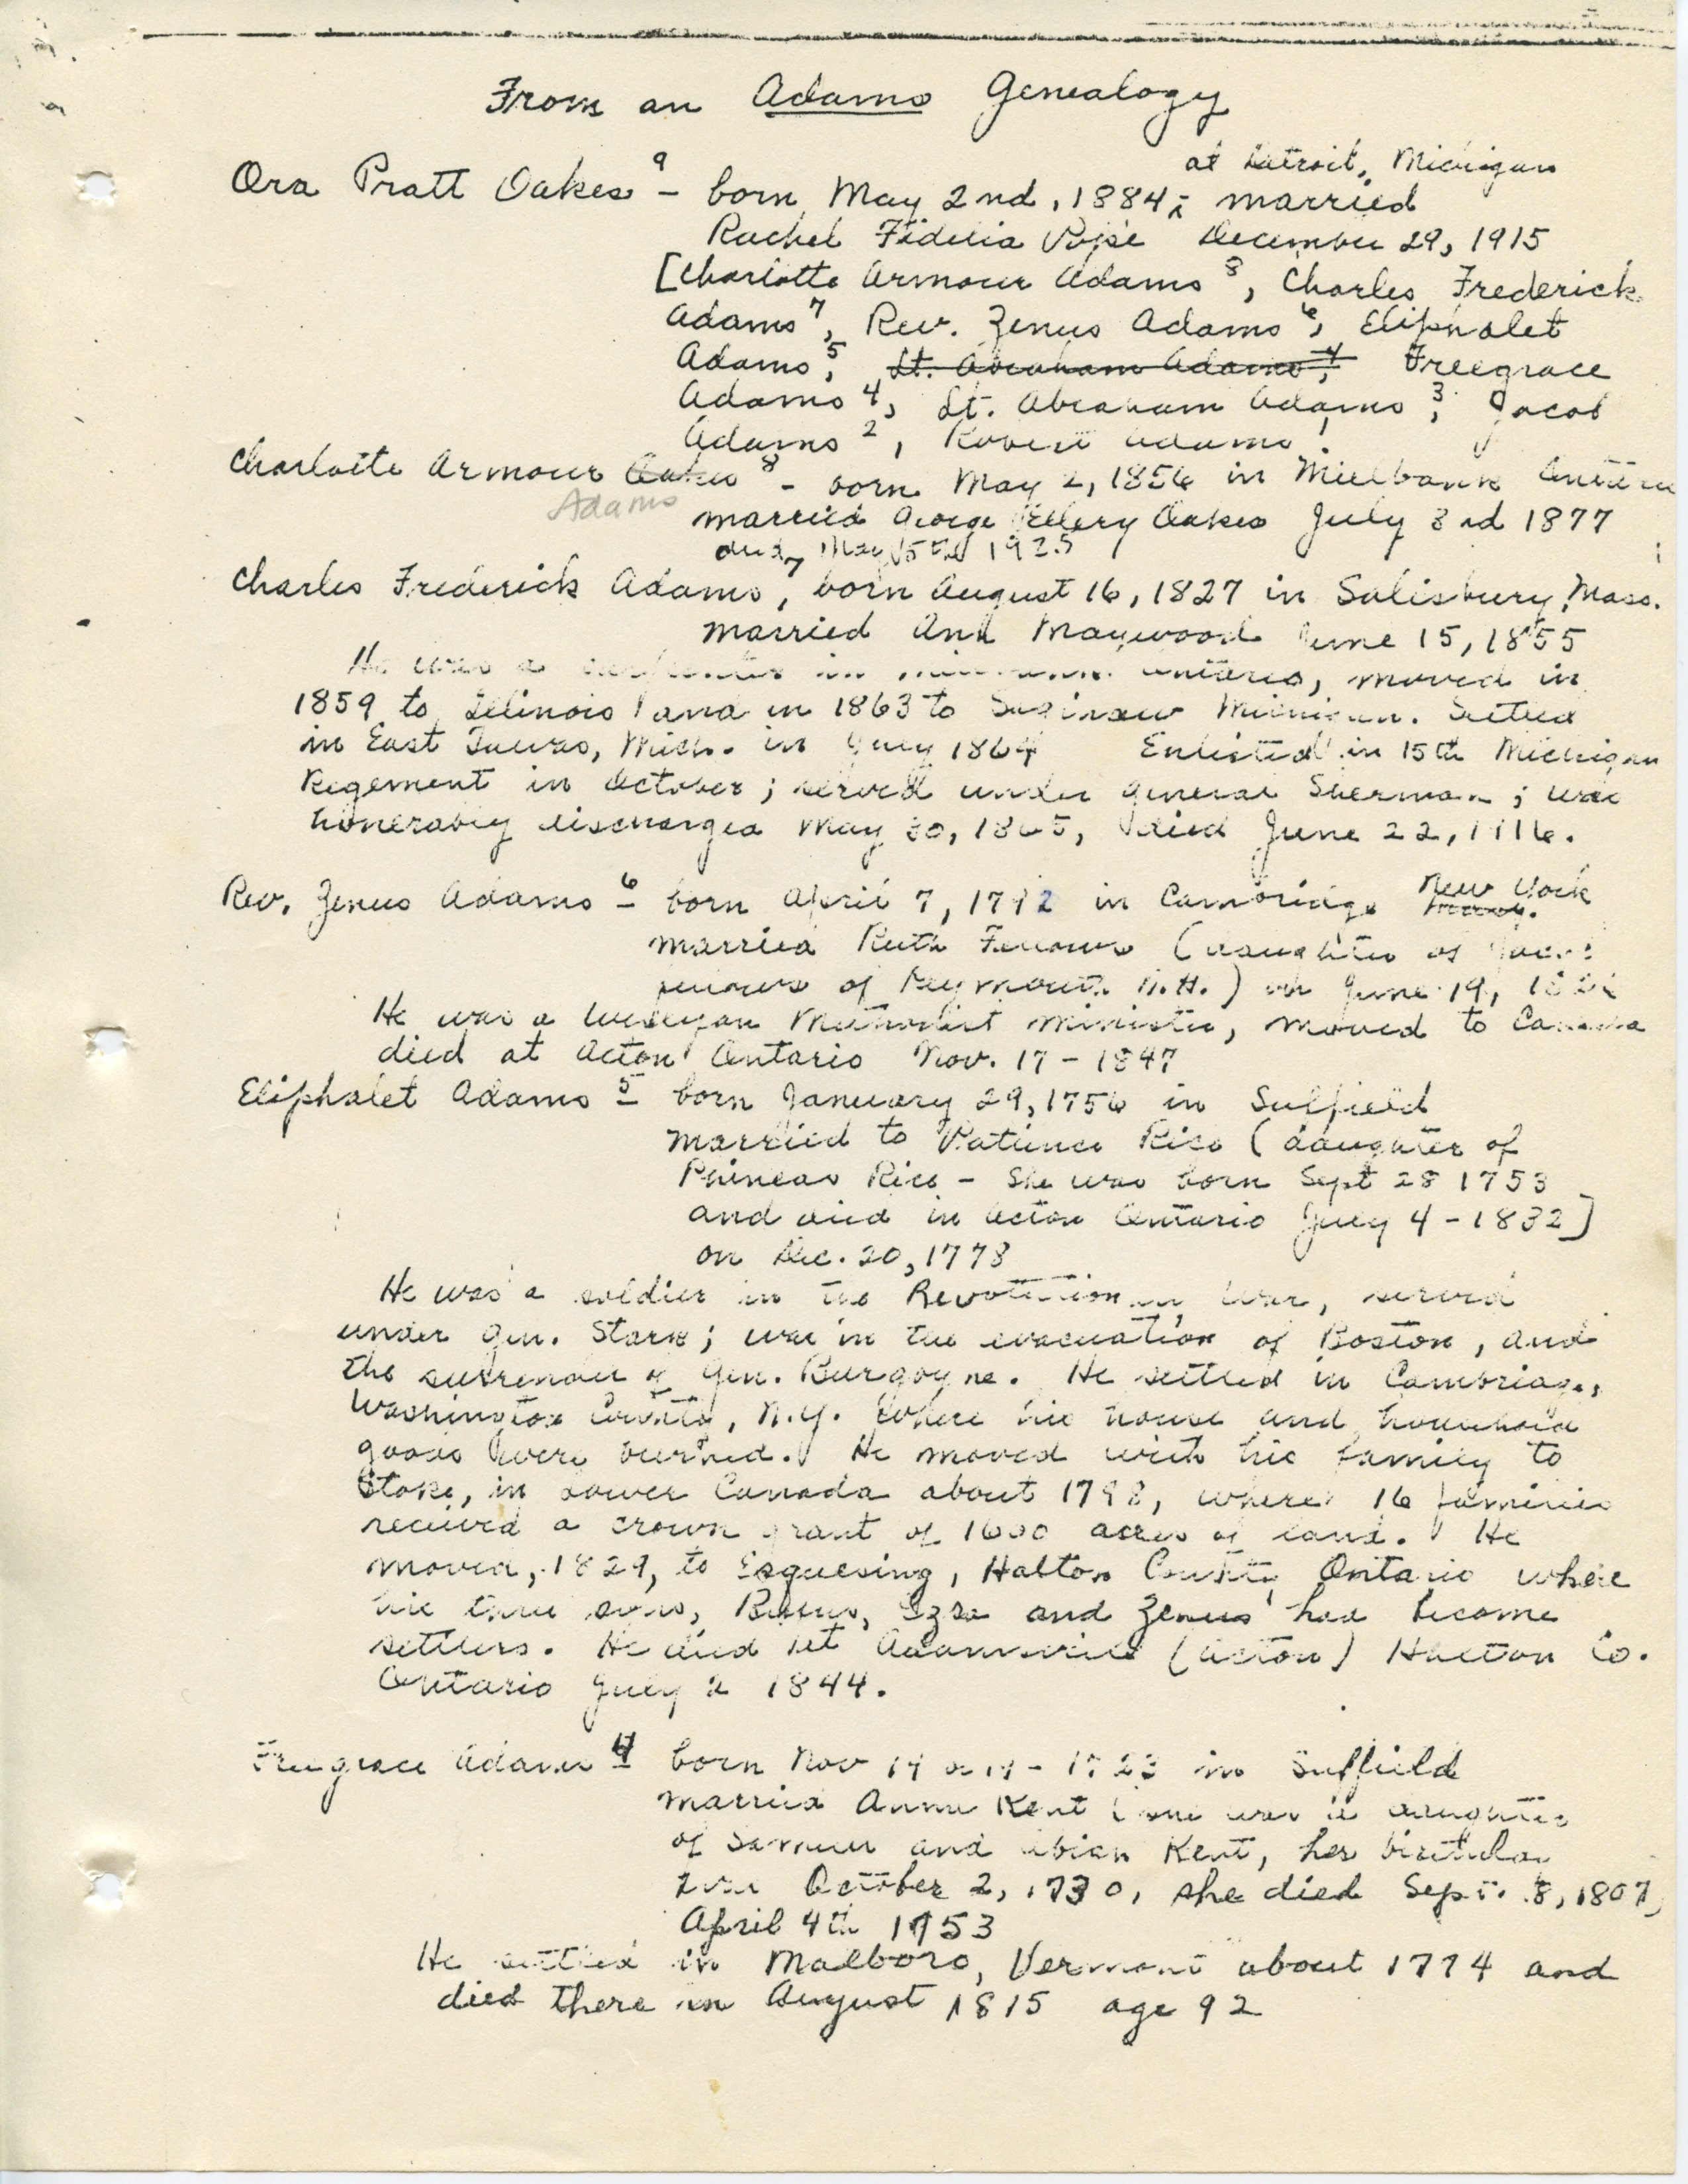 From an Adams Genealogy
at Detroit, Michigan
Ora Pratt Oakes 9 - born May 2nd, 1884; married
Rachel Fidelia Pope December 29, 1915
[Charlotte Armour Adams 8, Charles Frederick
Adams 7, Rev. Zenus Adams 6, Eliphalet
Adams 5, Lt. Abraham Adams, 4 Freegrace
Adams 4, Lt. Abraham Adams 3, Jacob
Adams 2, Robert Adams 1
Charlotte Armour Oakes 8 - born May 2, 1856 in Millbank Ontario
Adams
married George Ellery Oakes July 3rd 1877
died May 5th 1925
Charles Frederick Adams 7, born August 16, 1827 in Salisbury, Mass.
married Ann Maywood June 15, 1855
He was a in Ontario, moved in
1859 to Illinois and in 1863 to Saginaw Michigan. Settled
in East Tawas, Mich. in July 1864 Enlisted in 15th Michigan
Regement in October; served under General Sherman; was
honerably discharged May 30, 1865, died June 22, 1916.
Rev. Zenus Adams 6 - born April 7, 1792 in Cambridge New York
married Ruth Fellows (daughter of
Fellows of Plymouth N.H.) on June 19,
He was a Wesleyan Methodist minister, moved to Canada
died at Acton Ontario Nov. 17 - 1847
Eliphalet Adams 5 - born January 29, 1756 in Suffield
married to Patience Rice (daughter of
Phineas Rice - She was born Sept 28 1753
and died in Acton Ontario July 4 - 1832)
on Dec. 20, 1778
He was a soldier in the Revolutionary War, served
under Gen. Stark; was in the evacuation of Boston, and
the surrender of Gen. Burgoyne. He settled in Cambridge,
Washington County, N.Y. Where his house and household
goods were burned. He moved with his family to
Stoke, in Lower Canada about 1798, where 16 families
received a crown grant of 1600 acres of land. He
moved, 1829, to Esquesing, Halton County Ontario where
his three sons, Rufus, Ezra and Zenus had become
settlers. He died at Adamsville (Acton) Halton Co.
Ontario July 2 1844.
Freegrace Adams 4 born Nov in Suffield
married Anna Kent (she was a daughter
of Samuel and Abiah Kent, her birthday
was October 2, 1730, she died Sept. 8, 1807)
April 4th 1753
He settled in Malboro, Vermont about 1774 and
died there in August 1815 age 92